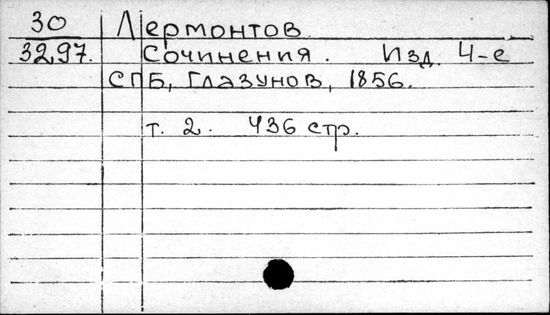 30 Лермонтов
32,97. Сочинения. Изд. 4-е
СПБ, Глазунов, 1856.
т. 2. 436 стр.